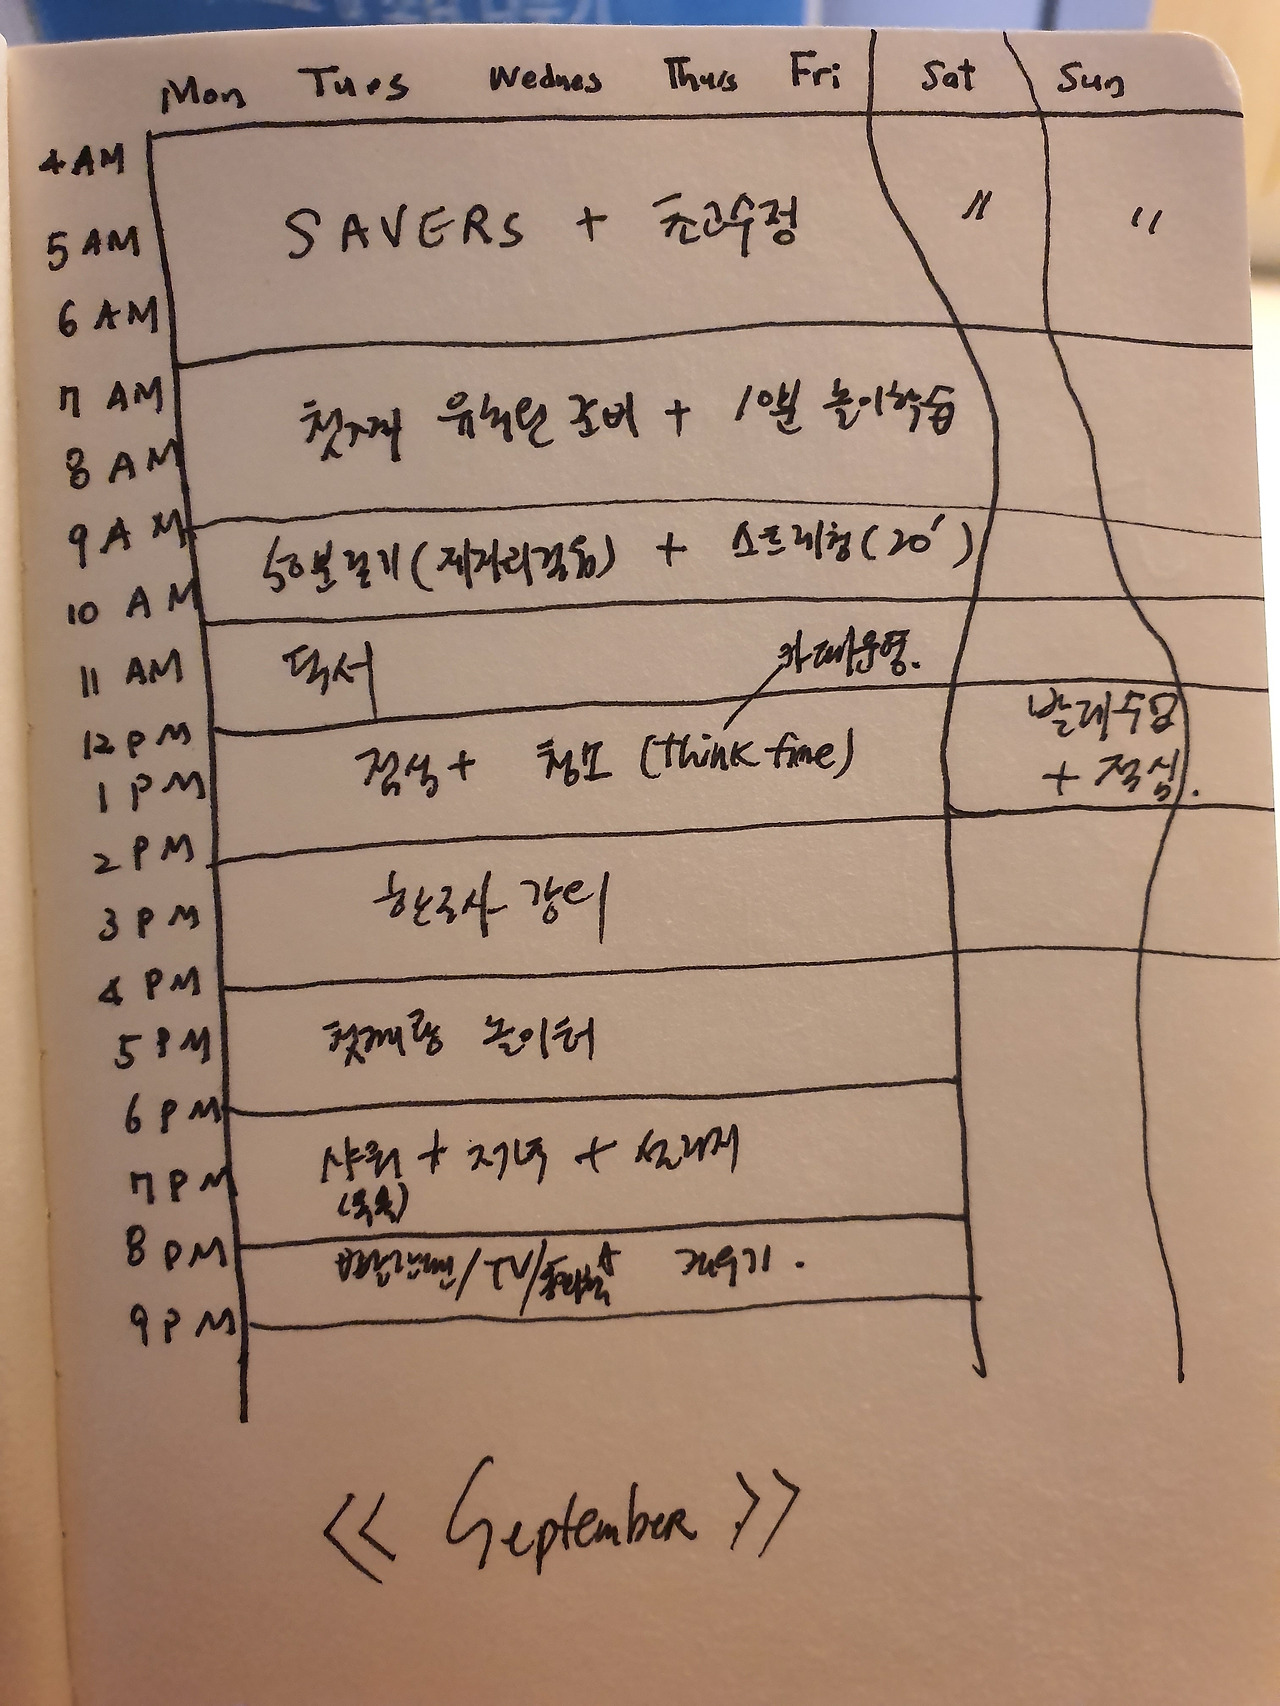 Mon Tues Wednes Thurs Fri Sat Sun
4 AM
5 AM SAVERS + 초고수정 〃 〃
6 AM
7 AM 첫째 유치원 준비 + 10분 놀이학습
8 AM
9 AM
50분 걷기 (제자리걸음) + 스트레칭 (20′)
10 AM
11 AM 독서 카페운영.
12 PM 점심 + 청소 (Think time) 발레수업
1 PM + 점심.
2 PM
3 PM 한국사 강의
4 PM
5 PM 첫째랑 놀이터
6 PM
7 PM 샤워 + 저녁 + 설거지
(목욕)
8 PM /TV/ 재우기.
9 PM
<< September >>